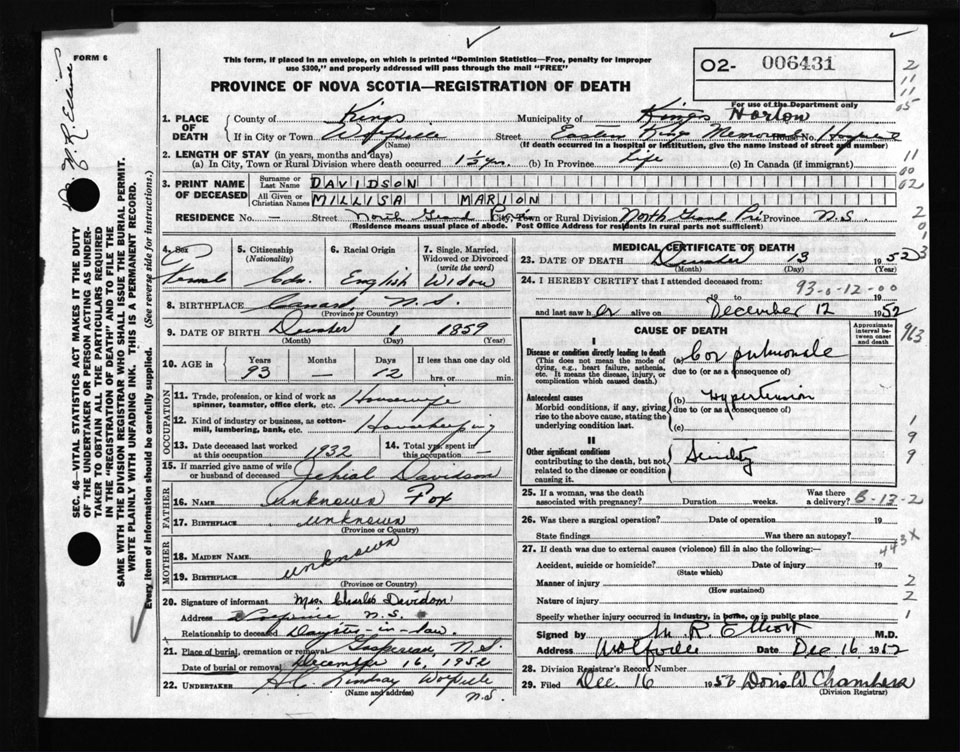 FORM 6
Dr. M R Elliott
This form, if placed in an envelope, on which is printed "Dominion Statistics—Free, penalty for improper
use $300," and properly addressed will pass through the mail "FREE"
PROVINCE OF NOVA SCOTIA—REGISTRATION OF DEATH
02- 006431
For use of the Department only
1. PLACE OF DEATH
County of Kings Municipality of Kings Horton
If in City or Town Wolfville Street Eastern Kings Memorial Hospital
(Name) (If death occurred in a hospital or institution, give the name instead of street and number)
2. LENGTH OF STAY (in years, months and days)
(a) In City, Town or Rural Division where death occurred 1½ yrs. (b) In Province life (c) In Canada (if immigrant)
3. PRINT NAME OF DECEASED
Surname or Last Name DAVIDSON
All Given or Christian Names MILLISA MARION
RESIDENCE No. — Street North Grand Pré City, Town or Rural Division North Grand Pré Province N.S.
(Residence means usual place of abode. Post Office Address for residents in rural parts not sufficient)
4. Sex Female
5. Citizenship (Nationality) Cdn.
6. Racial Origin English
7. Single, Married, Widowed or Divorced (write the word) Widow
8. BIRTHPLACE Canard N.S.
(Province or Country)
9. DATE OF BIRTH December 1 1859
(Month) (Day) (Year)
10. AGE in Years 93 Months — Days 12 If less than one day old
hrs. or min.
OCCUPATION
11. Trade, profession, or kind of work as spinner, teamster, office clerk, etc. Housewife
12. Kind of industry or business, as cotton-mill, lumbering, bank, etc. Housekeeping
13. Date deceased last worked at this occupation 1932
14. Total yrs. spent in this occupation —
15. If married give name of wife or husband of deceased Jehial Davidson
FATHER
16. NAME unknown Fox
17. BIRTHPLACE unknown
(Province or Country)
MOTHER
18. MAIDEN NAME unknown
19. BIRTHPLACE unknown
(Province or Country)
20. Signature of informant Mrs. Charles Davidson
Address Wolfville N.S.
Relationship to deceased Daughter-in-law.
21. Place of burial, cremation or removal Gaspereau, N.S.
Date of burial or removal December 16, 1952
22. UNDERTAKER H.C. Lindsay Wolfville N.S.
(Name and address)
MEDICAL CERTIFICATE OF DEATH
23. DATE OF DEATH December 13 1952
(Month) (Day) (Year)
24. I HEREBY CERTIFY that I attended deceased from:
93-0-12-00
19 to 19
and last saw her alive on December 12 1952
CAUSE OF DEATH
Approximate interval between onset and death
I
Disease or condition directly leading to death
(This does not mean the mode of dying, e.g., heart failure, asthenia, etc. It means the disease, injury, or complication which caused death.)
(a) Cor pulmonale
due to (or as a consequence of)
Antecedent causes
Morbid conditions, if any, giving rise to the above cause, stating the underlying condition last.
(b) Hypertension
due to (or as a consequence of)
(c)
II
Other significant conditions
contributing to the death, but not related to the disease or condition causing it.
Senility
25. If a woman, was the death associated with pregnancy? Duration weeks. Was there a delivery?
B-13-2
26. Was there a surgical operation? Date of operation 19
State findings Was there an autopsy?
443X
27. If death was due to external causes (violence) fill in also the following:—
Accident, suicide or homicide? Date of injury 19
(State which)
Manner of injury
(How sustained)
Nature of injury
Specify whether injury occurred in industry, in home, or in public place
Signed by M. R. Elliott M.D.
Address Wolfville Date Dec 16 1952
28. Division Registrar's Record Number
29. Filed Dec. 16 1952 Doris W Chambers
(Division Registrar)
SEC. 46—VITAL STATISTICS ACT MAKES IT THE DUTY
OF THE UNDERTAKER OR PERSON ACTING AS UNDER-
TAKER TO OBTAIN ALL THE PARTICULARS REQUIRED
IN THE "REGISTRATION OF DEATH" AND TO FILE THE
SAME WITH THE DIVISION REGISTRAR WHO SHALL ISSUE THE BURIAL PERMIT.
WRITE PLAINLY WITH UNFADING INK. THIS IS A PERMANENT RECORD.
Every item of information should be carefully supplied. (See reverse side for instructions.)
2
11
11
05
11
00
02
2
0
1
3
963
1
9
9
2
2
1